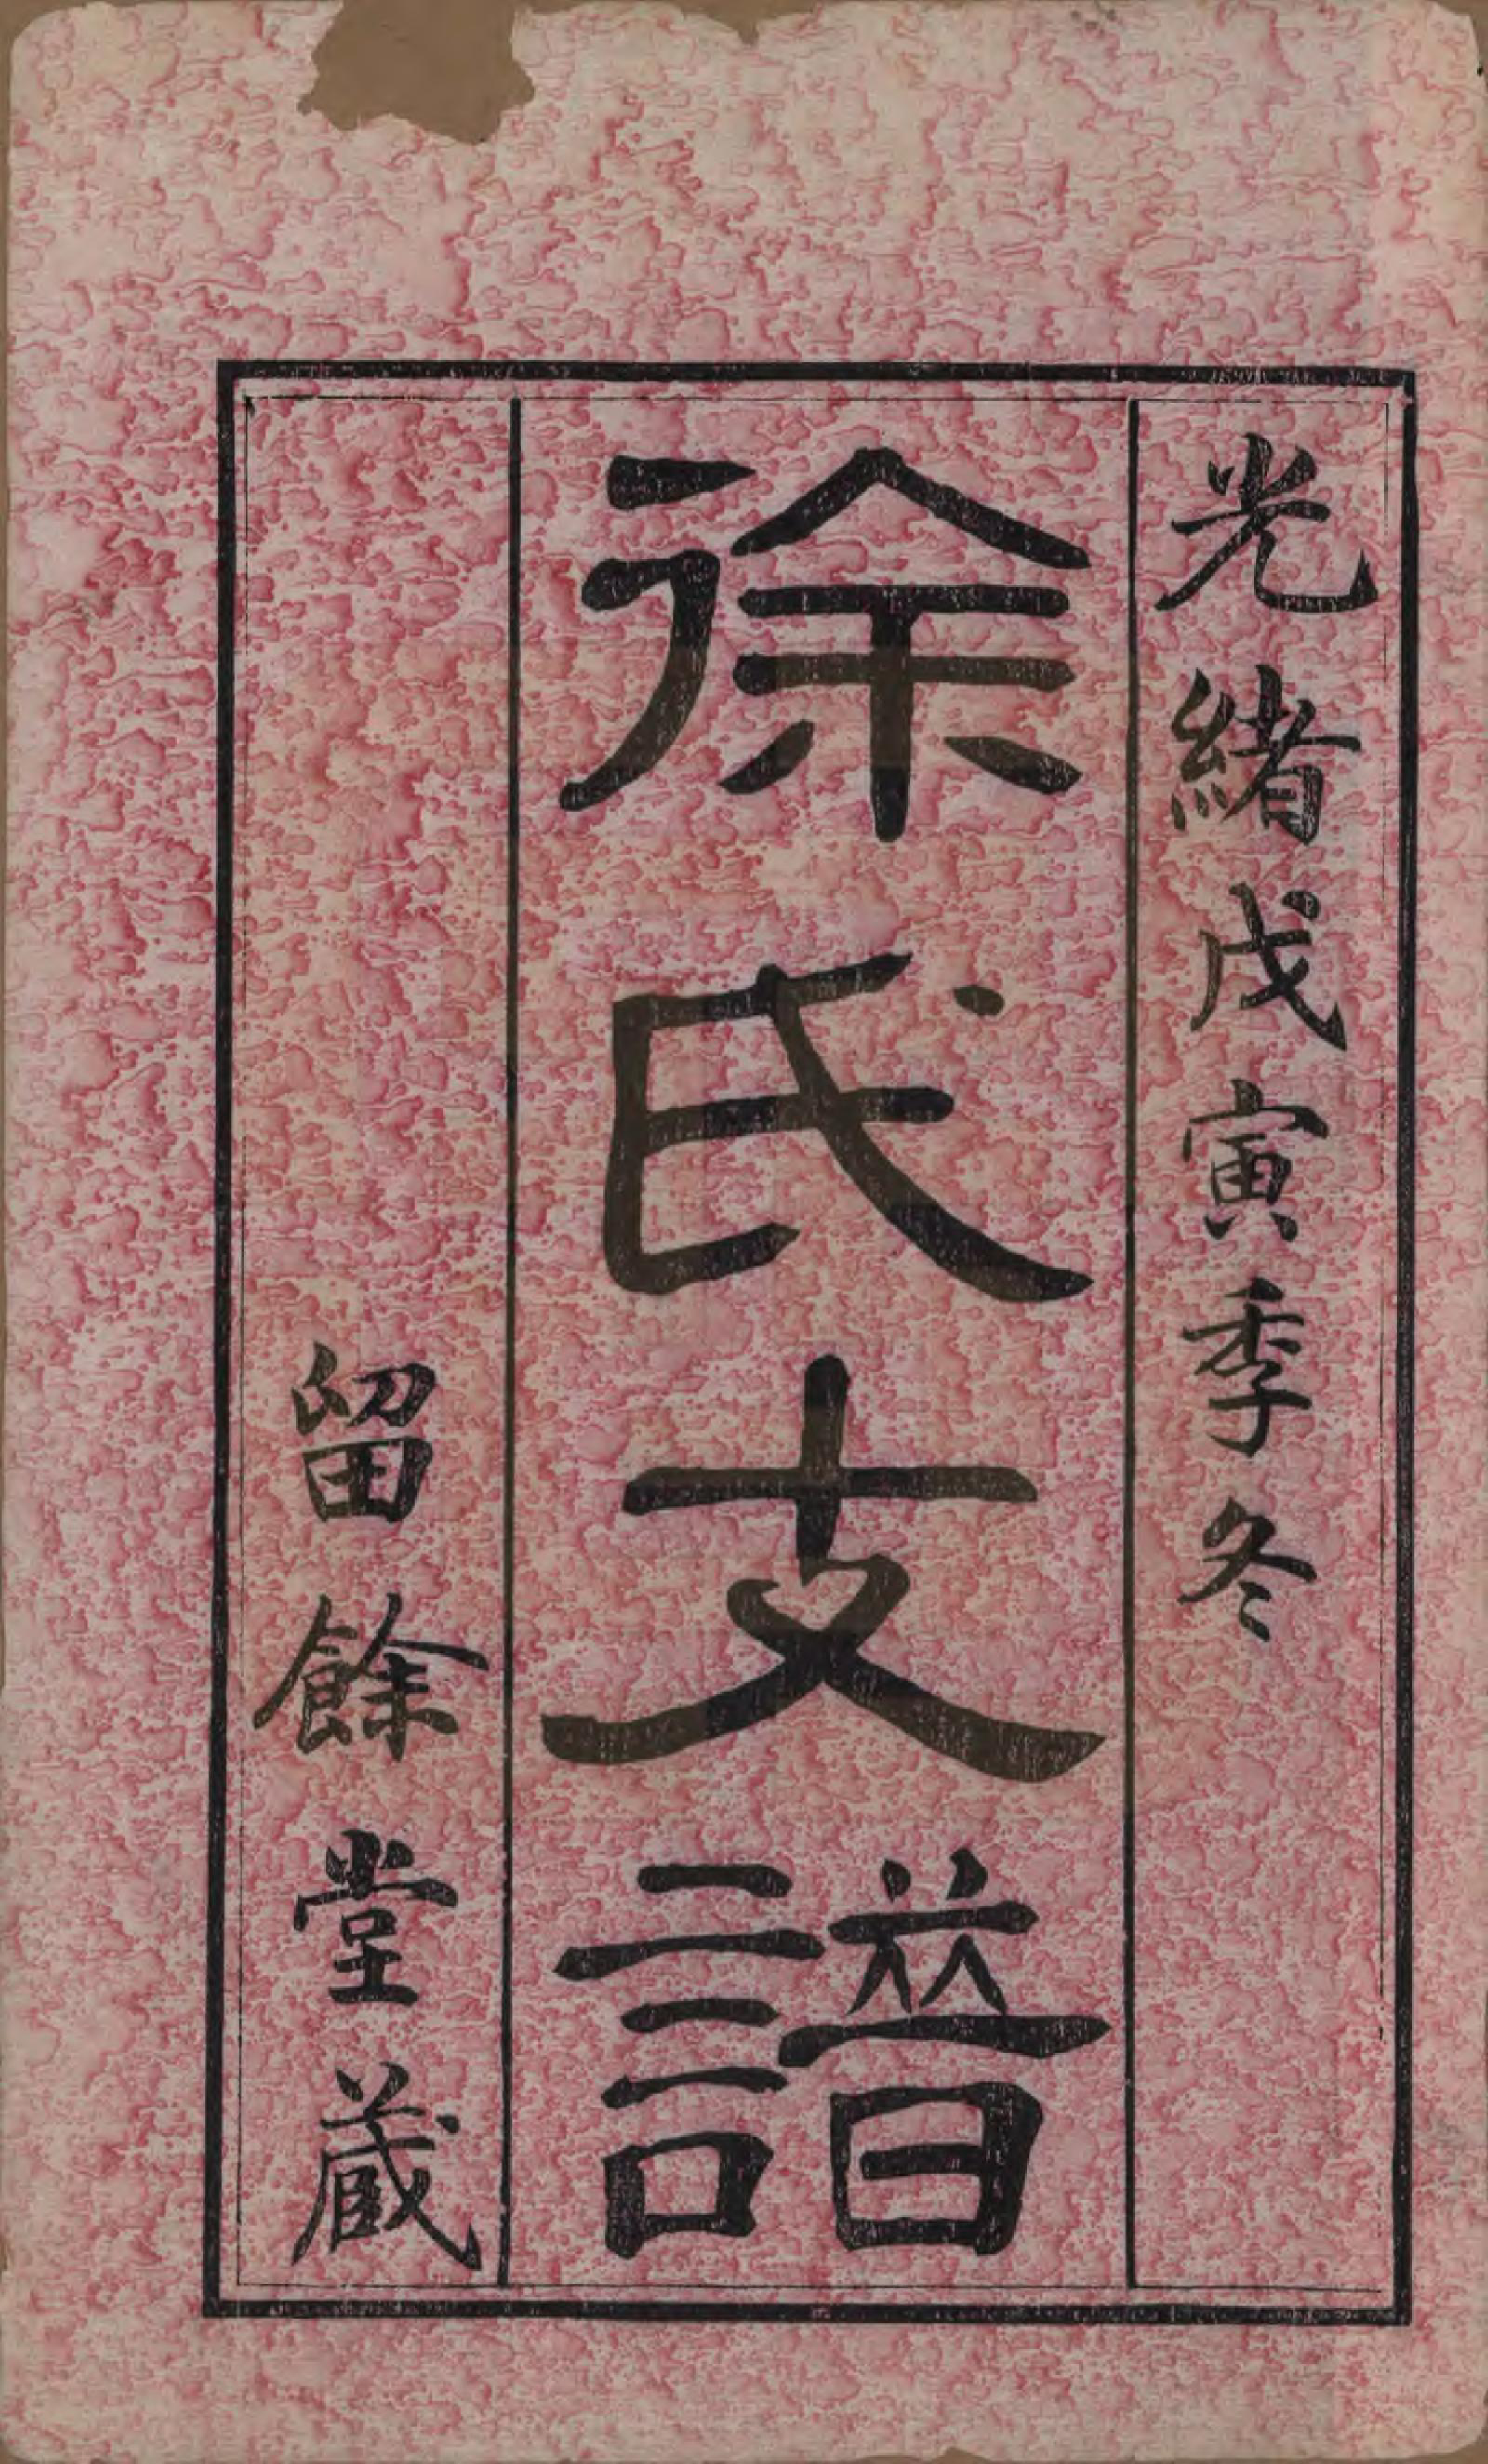 光緒戊寅季冬
徐氏支譜
留餘堂藏